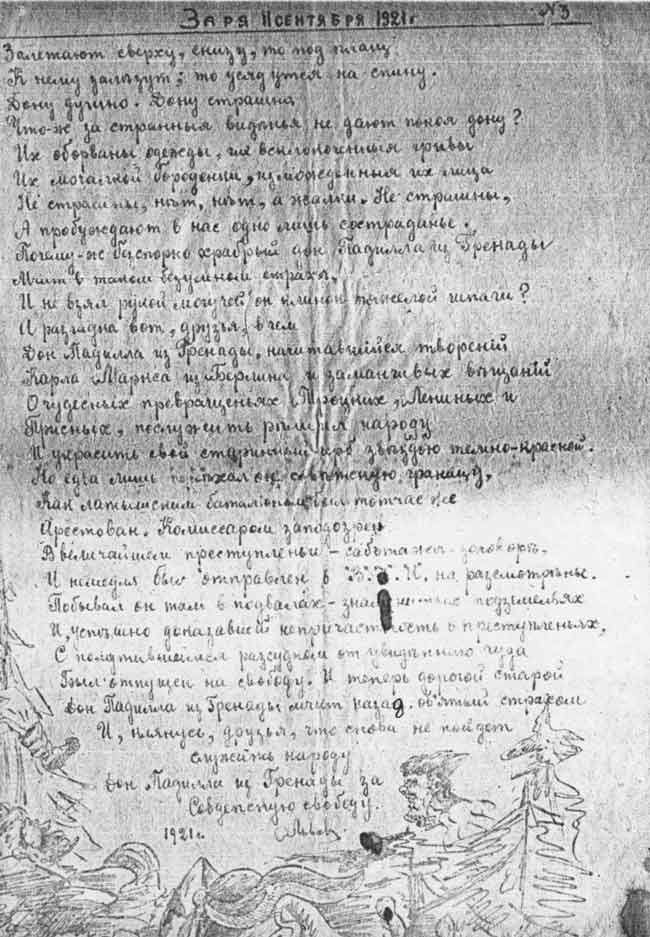 Заря 11 сентября 1921 г. №3
Залетают сверху, снизу, то под плащ
К нему залѣзут; то усядутся на спину.
Дону душно. Дону страшно
Что-ж за странныя видѣнья не дают покоя дону?
Их оборваны одежды, их всклокоченныя гривы
Их мочалкой бороденки, изможденныя их лица
Не страшны, нѣт, нѣт, а жалки. Не страшны,
А пробуждают в нас одно лишь состраданье.
Почему-ж безспорно храбрый дон Падилла из Гренады
Мчит в таком безумном страхѣ,
И не взял рукой могучей он клинок тяжелой шпаги?
А разгадка вот, друзья, в чем
Дон Падилла из Гренады, начитавшийся творений
Карла Маркса из Берлина и заманчивых вѣщаний
О чудесных превращеньях Троцких, Лениных и
Присных, послужить рѣшил народу
И украсить свой старинный герб звѣздою темно-красной.
Но едва лишь переѣхал он совѣтскую границу,
Как латышским батальоном был тотчас же
Арестован. Комиссаром заподозрен
В величайшем преступленьи – саботажѣ
И немедля был отправлен в на разсмотрѣнье.
Побывал он там в подвалах – подземельях
И, успѣшно доказавший непричастность к преступленьях,
С помутившимся разсудком от увидѣнного чуда
Был отпущен на свободу. И теперь дорогой старой
Дон Падилла из Гренады мчит назад. об'ятый страхом
И, клянусь, друзья, что снова не пойдет
служить народу
Дон Падилла из Гренады за
Совдепскую свободу.
1921 г.